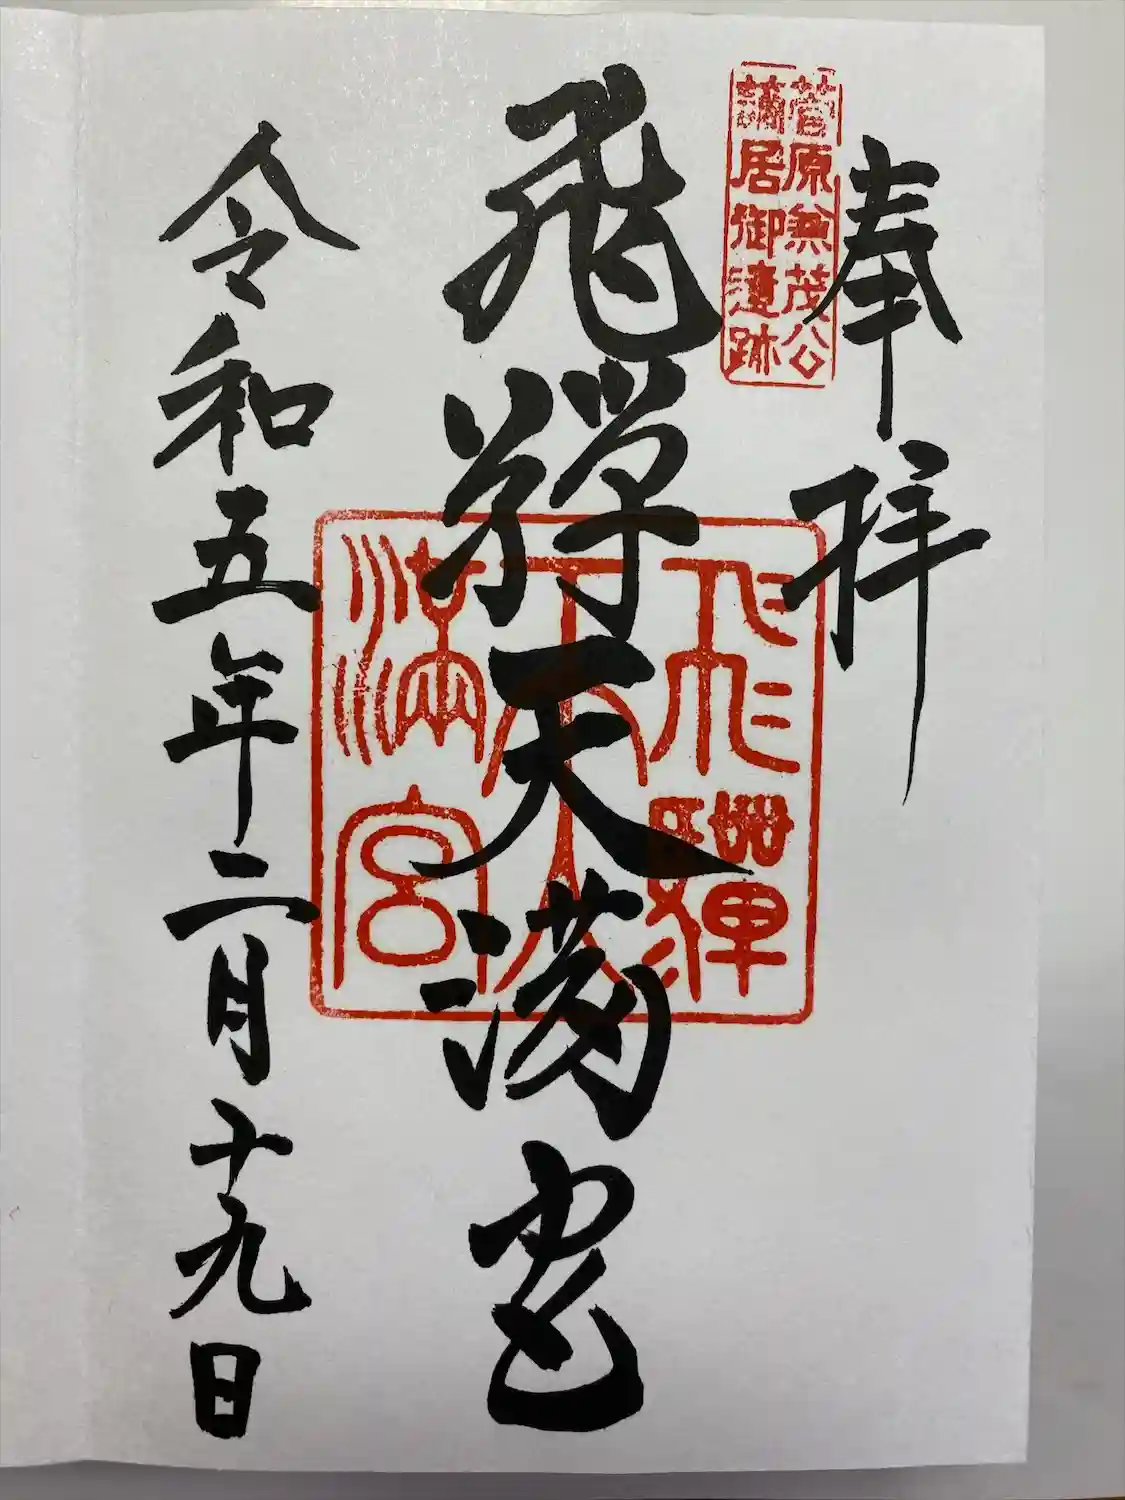 奉拝
菅原兼茂公
謫居御遺跡
飛騨天満宮
飛騨
天
満宮
令和五年二月十九日